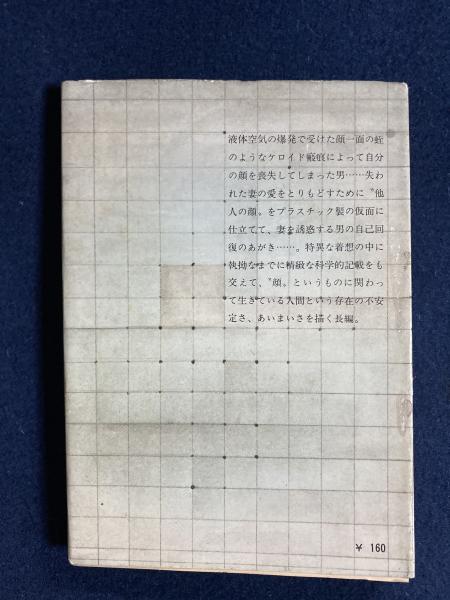 液体空気の爆発で受けた顔一面の蛭
のようなケロイド瘢痕によって自分
の顔を喪失してしまった男……失わ
れた妻の愛をとりもどすために〝他
人の顔〟をプラスチック製の仮面に
仕立てて、妻を誘惑する男の自己回
復のあがき……。特異な着想の中に
執拗なまでに精緻な科学的記載をも
交えて、〝顔〟というものに関わっ
て生きている人間という存在の不安
定さ、あいまいさを描く長編。
¥ 160